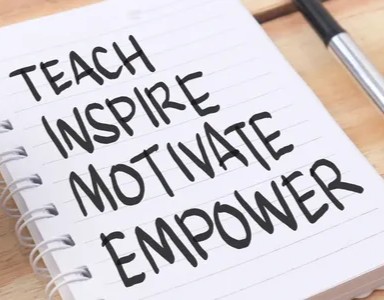 TEACH
INSPIRE
MOTIVATE
EMPOWER